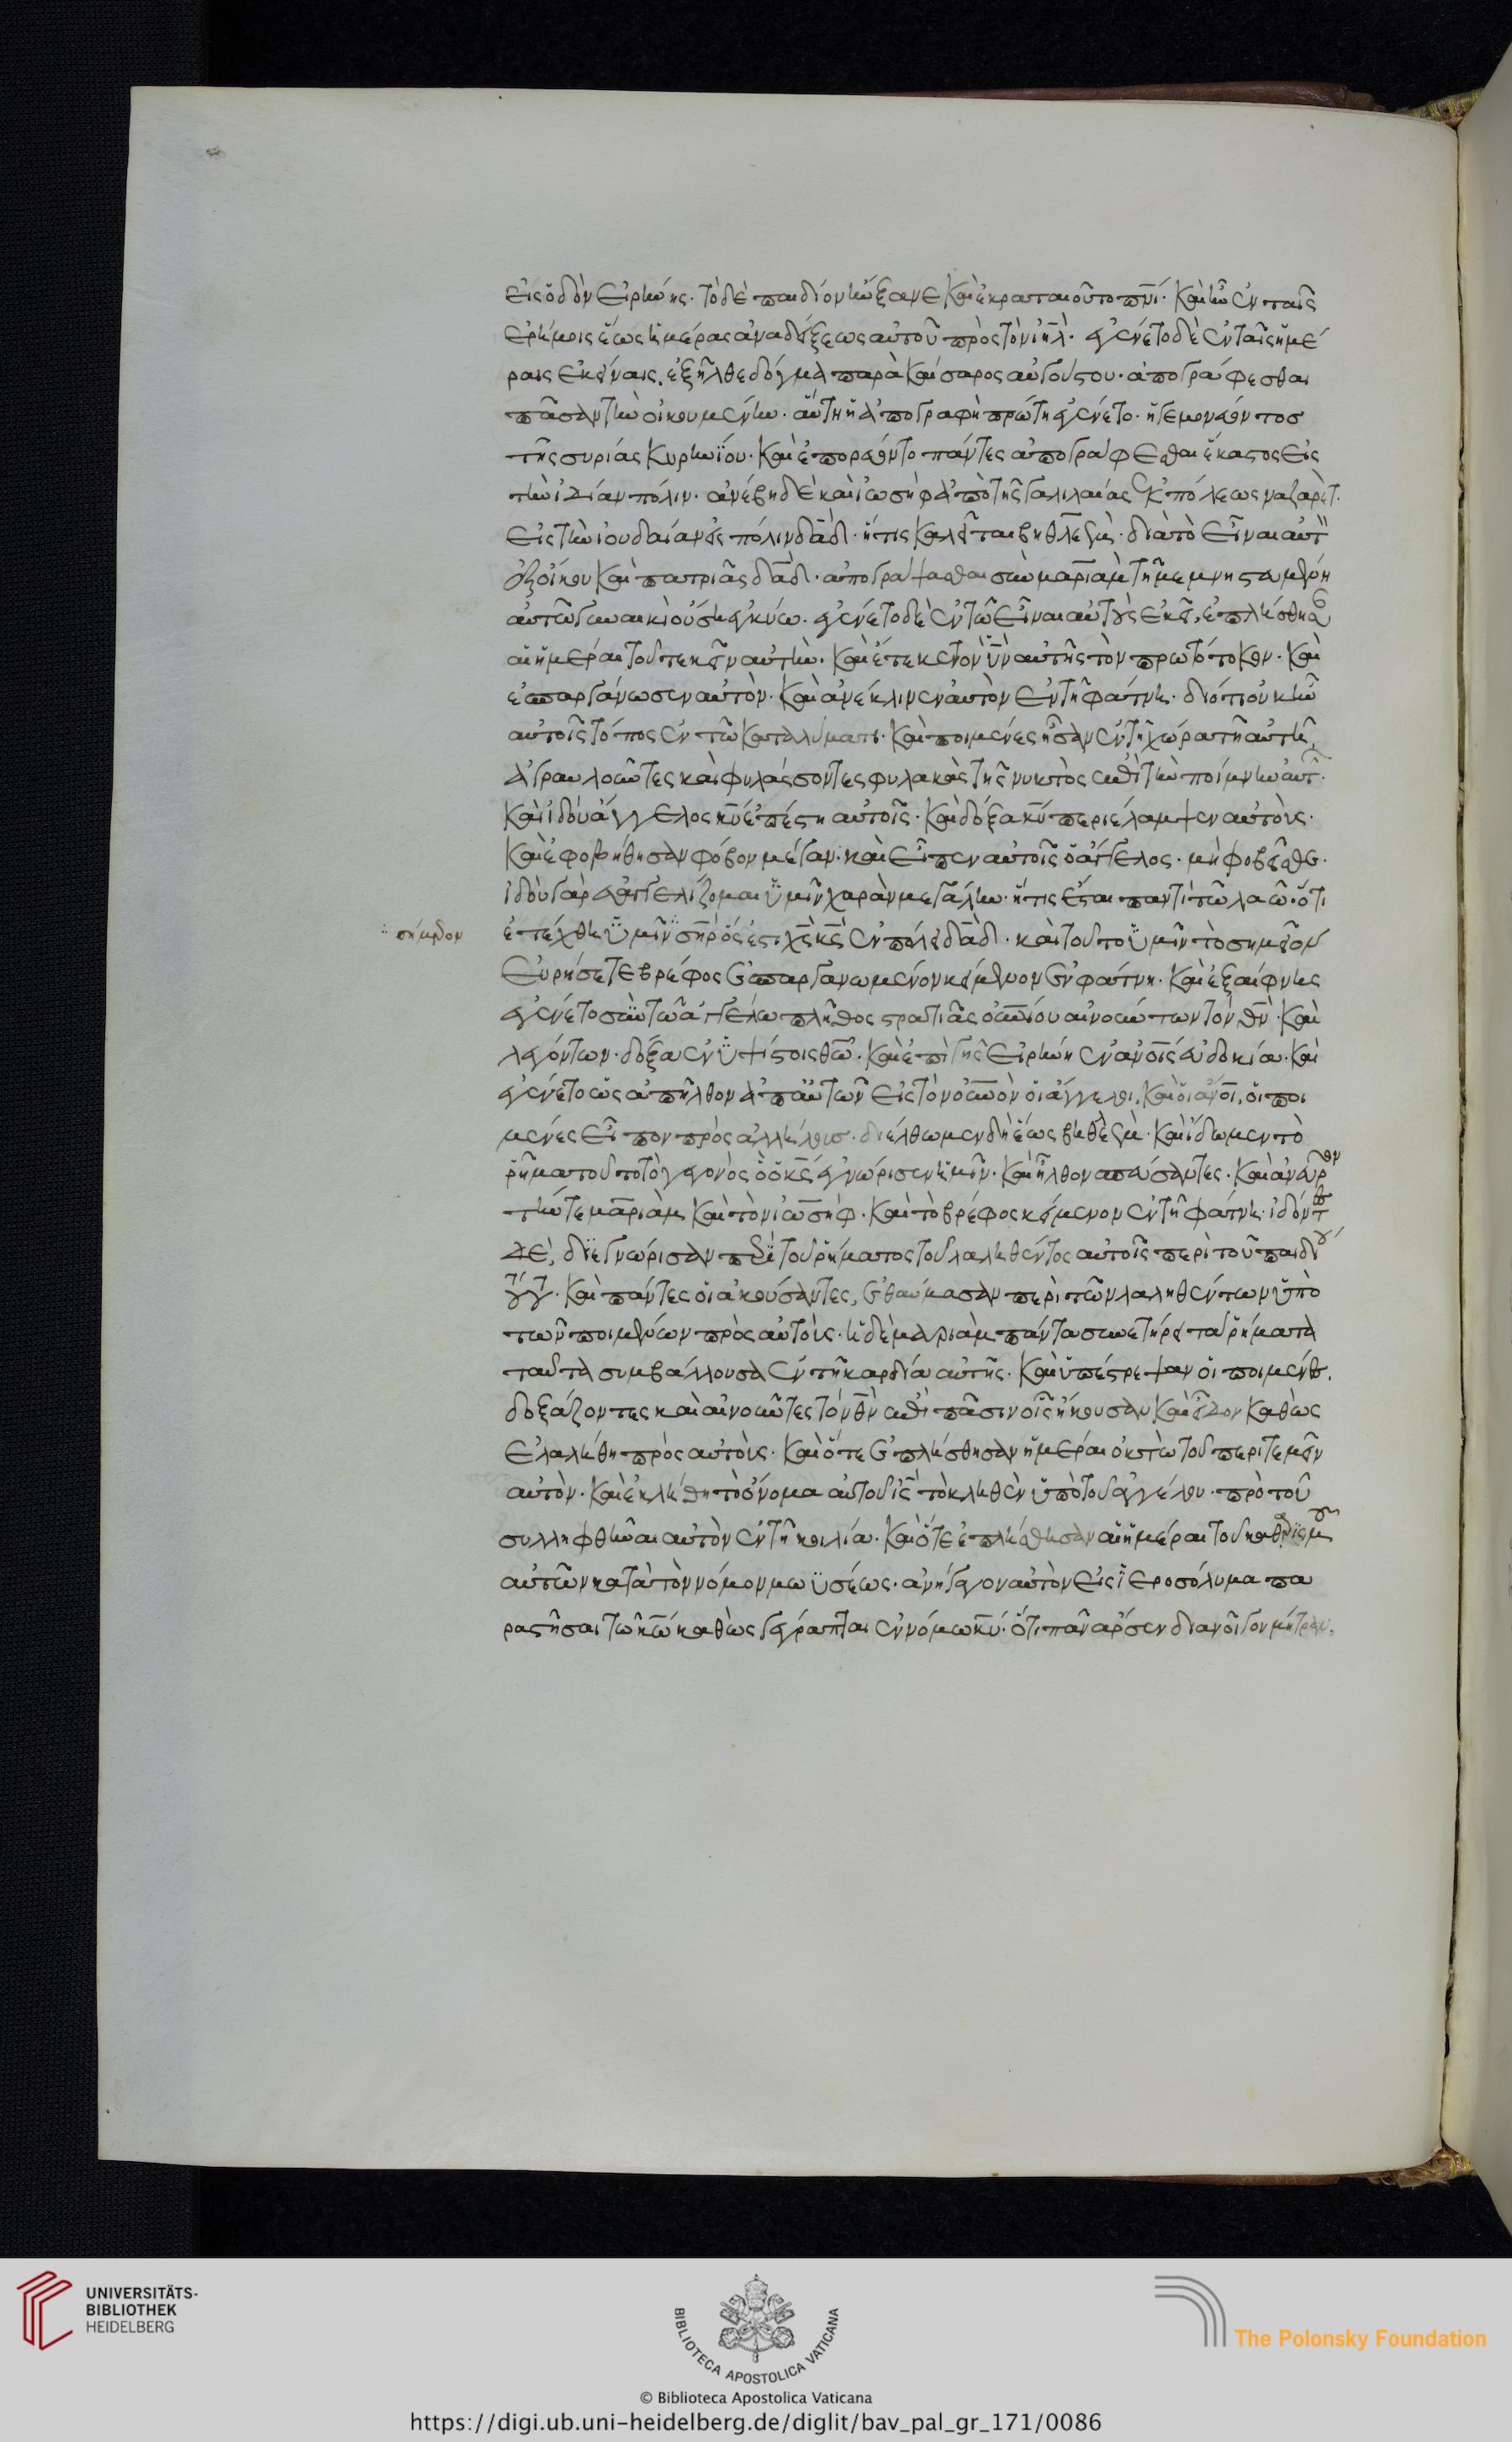 εἰς ὁδὸν εἰρήνης. τὸ δὲ παιδίον ηὔξανε καὶ ἐκραταιοῦτο πνί. καὶ ἦν ἐν ταῖς
ἐρήμοις ἕως ἡμέρας ἀναδείξεως αὐτοῦ πρὸς τὸν ιηλ. ἐγένετο δὲ ἐν ταῖς ἡμέ
ραις ἐκείναις, ἐξῆλθε δόγμα παρὰ καίσαρος αὐγούστου. ἀπογράφεσθαι
πᾶσαν τὴν οἰκουμένην. αὕτη ἡ ἀπογραφὴ πρώτη ἐγένετο. ἡγεμονεύοντος
τῆς συρίας κυρηνίου. καὶ ἐπορεύοντο πάντες ἀπογράφεσθαι ἕκαστος εἰς
τὴν ἰδίαν πόλιν. ἀνέβη δὲ καὶ ἰωσὴφ ἀπὸ τῆς γαλιλαίας ἐκ πόλεως ναζαρὲτ.
εἰς τὴν ἰουδαίαν εἰς πόλιν δαδ. ἥτις καλεῖται βηθλεὲμ. διὰ τὸ εἶναι αὐτὸν
ἐξ οἴκου καὶ πατριᾶς δαδ. ἀπογράψασθαι σὺν μαριὰμ τῇ μεμνηστευμένῃ
αὐτῶ γυναικὶ οὔσῃ ἐγκύω. ἐγένετο δὲ ἐν τῶ εἶναι αὐτοὺς ἐκεῖ, ἐπλήσθησαν
αἱ ἡμέραι τοῦ τεκεῖν αὐτὴν. καὶ ἔτεκεν τὸν υν αὐτῆς τὸν πρωτότοκον. καὶ
ἐσπαργάνωσεν αὐτὸν. καὶ ἀνέκλινεν αὐτὸν ἐν τῇ φάτνη. διότι οὐκ ἦν
αὐτοῖς τόπος ἐν τῶ καταλύματι. καὶ ποιμένες ἦσαν ἐν τῇ χώρα τῇ αὐτῇ,
ἀγραυλοῦντες καὶ φυλάσσοντες φυλακὰς τῆς νυκτὸς ἐπὶ τὴν ποίμνην αὐτῶν.
καὶ ἰδοὺ ἄγγελος κυ ἐπέστη αὐτοῖς. καὶ δόξα κυ περιέλαμψεν αὐτοὺς.
καὶ ἐφοβήθησαν φόβον μέγαν. καὶ εἶπεν αὐτοῖς ὁ ἄγγελος. μὴ φοβεῖσθε.
ἰδοὺ γὰρ εὐαγγελίζομαι ὑμῖν χαρὰν μεγάλην. ἥτις ἔσται παντὶ τῶ λαῶ. ὅτι
σήμερον
ἐτέχθη ὑμῖν σηρ ὅς ἐστι χς κς ἐν πόλει δαδ. καὶ τοῦτο ὑμῖν τὸ σημεῖον
εὑρήσετε βρέφος ἐσπαργανωμένον κείμενον ἐν φάτνη. καὶ ἐξαίφνης
ἐγένετο σὺν τῶ ἀγγέλω πλῆθος στρατιᾶς οὐνίου αἰνούντων τὸν θν. καὶ
λεγόντων. δόξα ἐν ὑψίστοις θω. καὶ ἐπὶ γῆς εἰρήνη ἐν ανοις εὐδοκία. καὶ
ἐγένετο ὡς ἀπῆλθον ἀπ αὐτῶν εἰς τὸν ουνον οἱ ἄγγελοι. καὶ οἱ ανοι, οἱ ποι
μένες εἶπον πρὸς ἀλλήλους. διέλθωμεν δὴ ἕως βηθλεὲμ. καὶ ἴδωμεν τὸ
ῥῆμα τοῦτο τὸ γεγονὸς ὃ ὁ κς ἐγνώρισεν ἡμῖν. καὶ ἦλθον σπεύσαντες. καὶ ἀνεῦρον
τήν τε μαριὰμ καὶ τὸν ἰωσὴφ. καὶ τὸ βρέφος κείμενον ἐν τῇ φάτνη. ἰδόντες
δὲ, διεγνώρισαν περὶ τοῦ ῥήματος τοῦ λαληθέντος αὐτοῖς περὶ τοῦ παιδίου
τούτου. καὶ πάντες οἱ ἀκούσαντες, ἐθαύμασαν περὶ τῶν λαληθέντων ὑπὸ
τῶν ποιμένων πρὸς αὐτοὺς. ἡ δὲ μαριὰμ πάντα συνετήρει τὰ ῥήματα
ταῦτα συμβάλλουσα ἐν τῇ καρδία αὐτῆς. καὶ ὑπέστρεψαν οἱ ποιμένες.
δοξάζοντες καὶ αἰνοῦντες τὸν θν ἐπὶ πᾶσιν οἷς ἤκουσαν καὶ εἶδον καθὼς
ἐλαλήθη πρὸς αὐτοὺς. καὶ ὅτε ἐπλήσθησαν ἡμέραι ὀκτὼ τοῦ περιτεμεῖν
αὐτὸν. καὶ ἐκλήθη τὸ ὄνομα αὐτοῦ ις τὸ κληθὲν ὑπὸ τοῦ ἀγγέλου. πρὸ τοῦ
συλληφθῆναι αὐτὸν ἐν τῇ κοιλία. καὶ ὅτε ἐπλήσθησαν αἱ ἡμέραι τοῦ καθαρισμοῦ
αὐτῶν κατὰ τὸν νόμον μωϋσέως. ἀνήγαγον αὐτὸν εἰς ἱεροσόλυμα πα
ραστῆσαι τῶ κω καθὼς γέγραπται ἐν νόμω κυ. ὅτι πᾶν ἄρσεν διανοῖγον μήτραν.
UNIVERSITÄTS-
BIBLIOTHEK
HEIDELBERG
BIBLIOTECA APOSTOLICA VATICANA
© Biblioteca Apostolica Vaticana
The Polonsky Foundation
https://digi.ub.uni-heidelberg.de/diglit/bav_pal_gr_171/0086